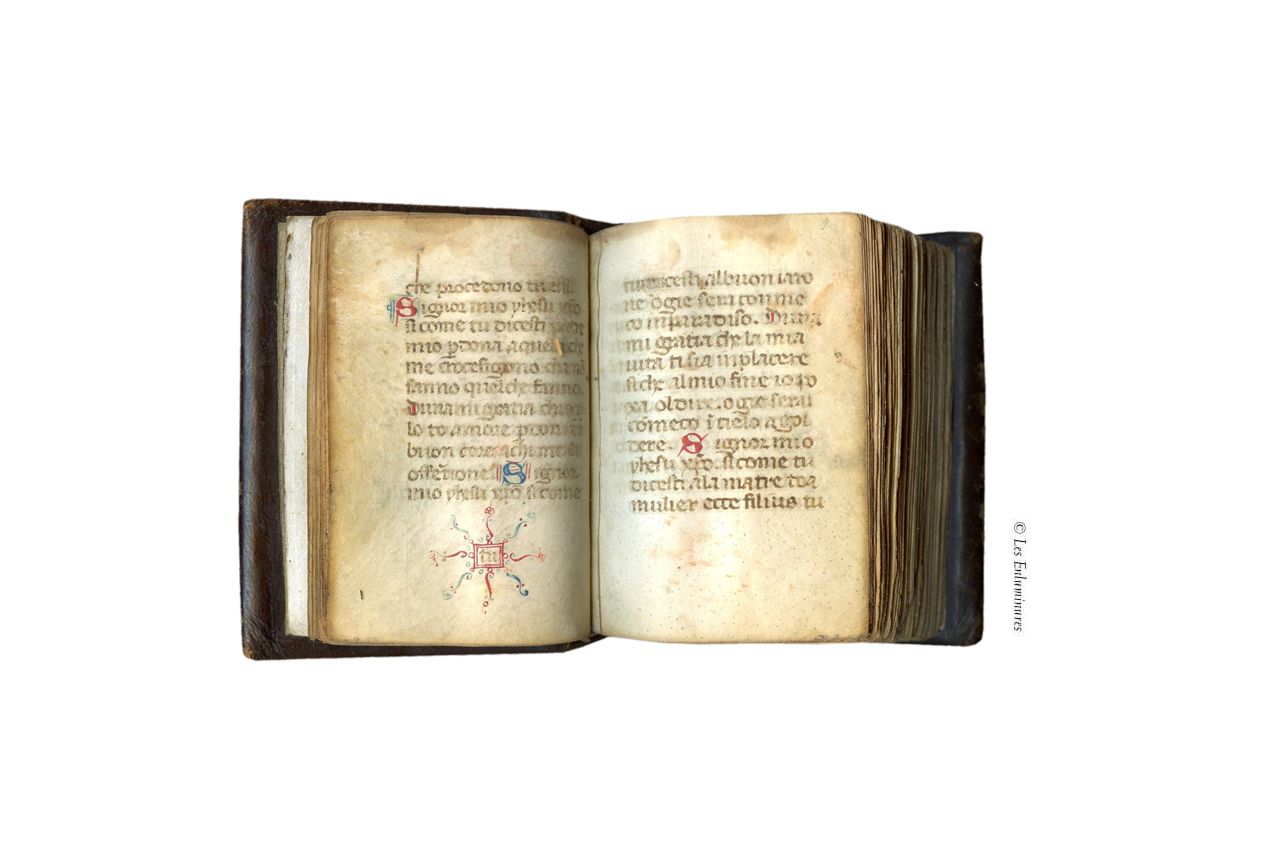 che procedono
Signor mio yhesu xpo
si come tu dicesti
mio pdona aquelli che
me crocesigono che no
sanno quelche fanno.
Duna mi gratia
lo to amore
buon core
offensione Signor
mio yhesu xpo si come
tu
tu dicesti albuon laro
ne ogie serai con me
co in paradiso. Duna
mi gratia che la mia
uita ti sia in placere
si che al mio fine io
oldire. ogie serai
co meco i cielo a
dere. Signor mio
yhesu xpo. si come tu
dicesti a la matre toa
mulier ecce filius tu
© Les Enluminures